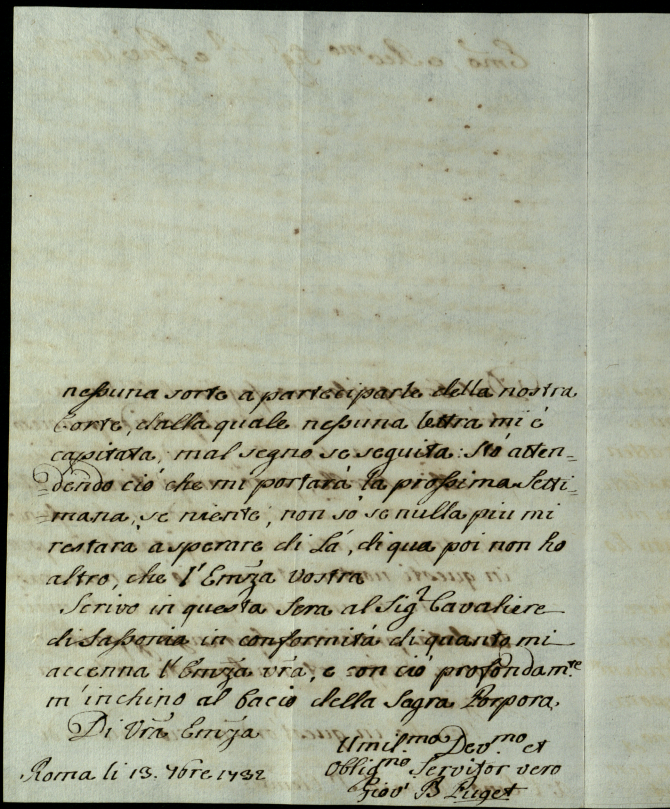 nessuna sorte a participarle della nostra
Corte, dalla quale nessuna lettra mi é
capitata, mal segno se seguita: Stó atten=
=dendo ció che mi portará la prossima Setti=
=mana, se niente, non só se nulla piu mi
restará a sperare di Lá, di qua poi non ho
altro, che l'Emza Vostra
Scrivo in questa Sera al Sigr Cavaliere
di Sassonia in conformitá di quanto mi
accenna l'Emza vra, e con ció profondamte
m'inchino al bacio della Sagra Porpora,
Di Vra Emza
Umilmo Devmo et
Obligmo Servitor vero
Roma li 13. 7bre 1732
Giov B Puget